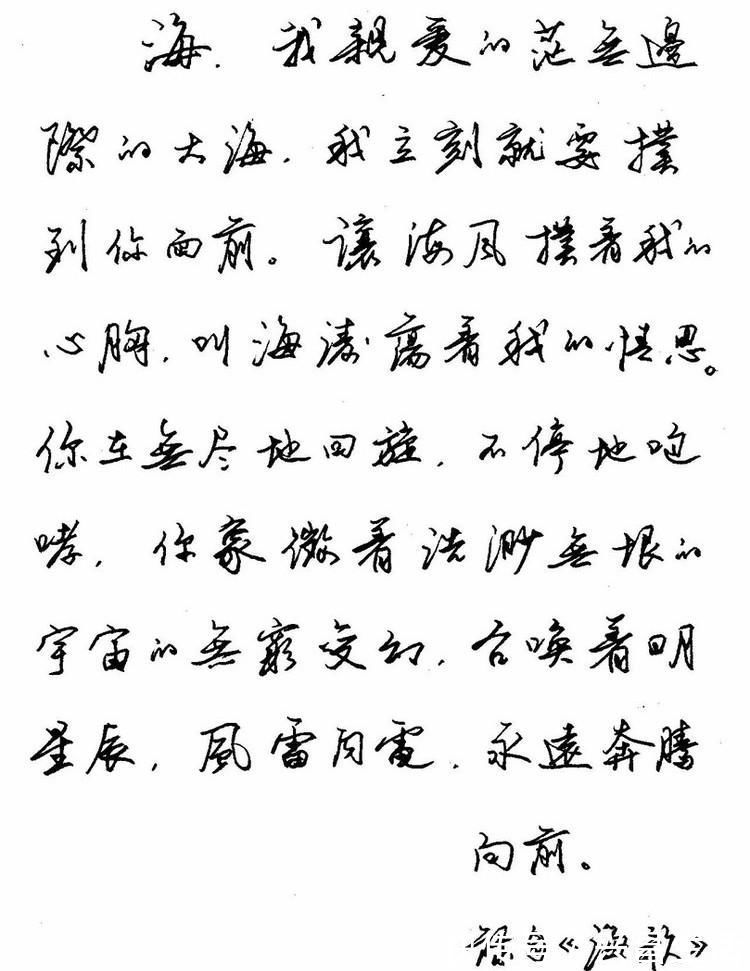 海，我親爱的茫無邊
際的大海，我立刻就要撲
到你面前。讓海风撲着我的
心胸，叫海涛蕩着我的情思。
你在無尽地回旋，不停地咆
哮，你象徵着浩渺無垠的
宇宙的無窮变幻，召唤着日月
星辰，風雷闪電，永遠奔騰
向前。
《海歌》